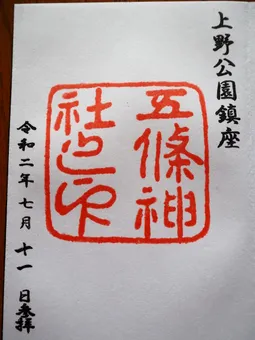 上野公園鎮座
五條神
社之印
令和二年七月十一日参拝